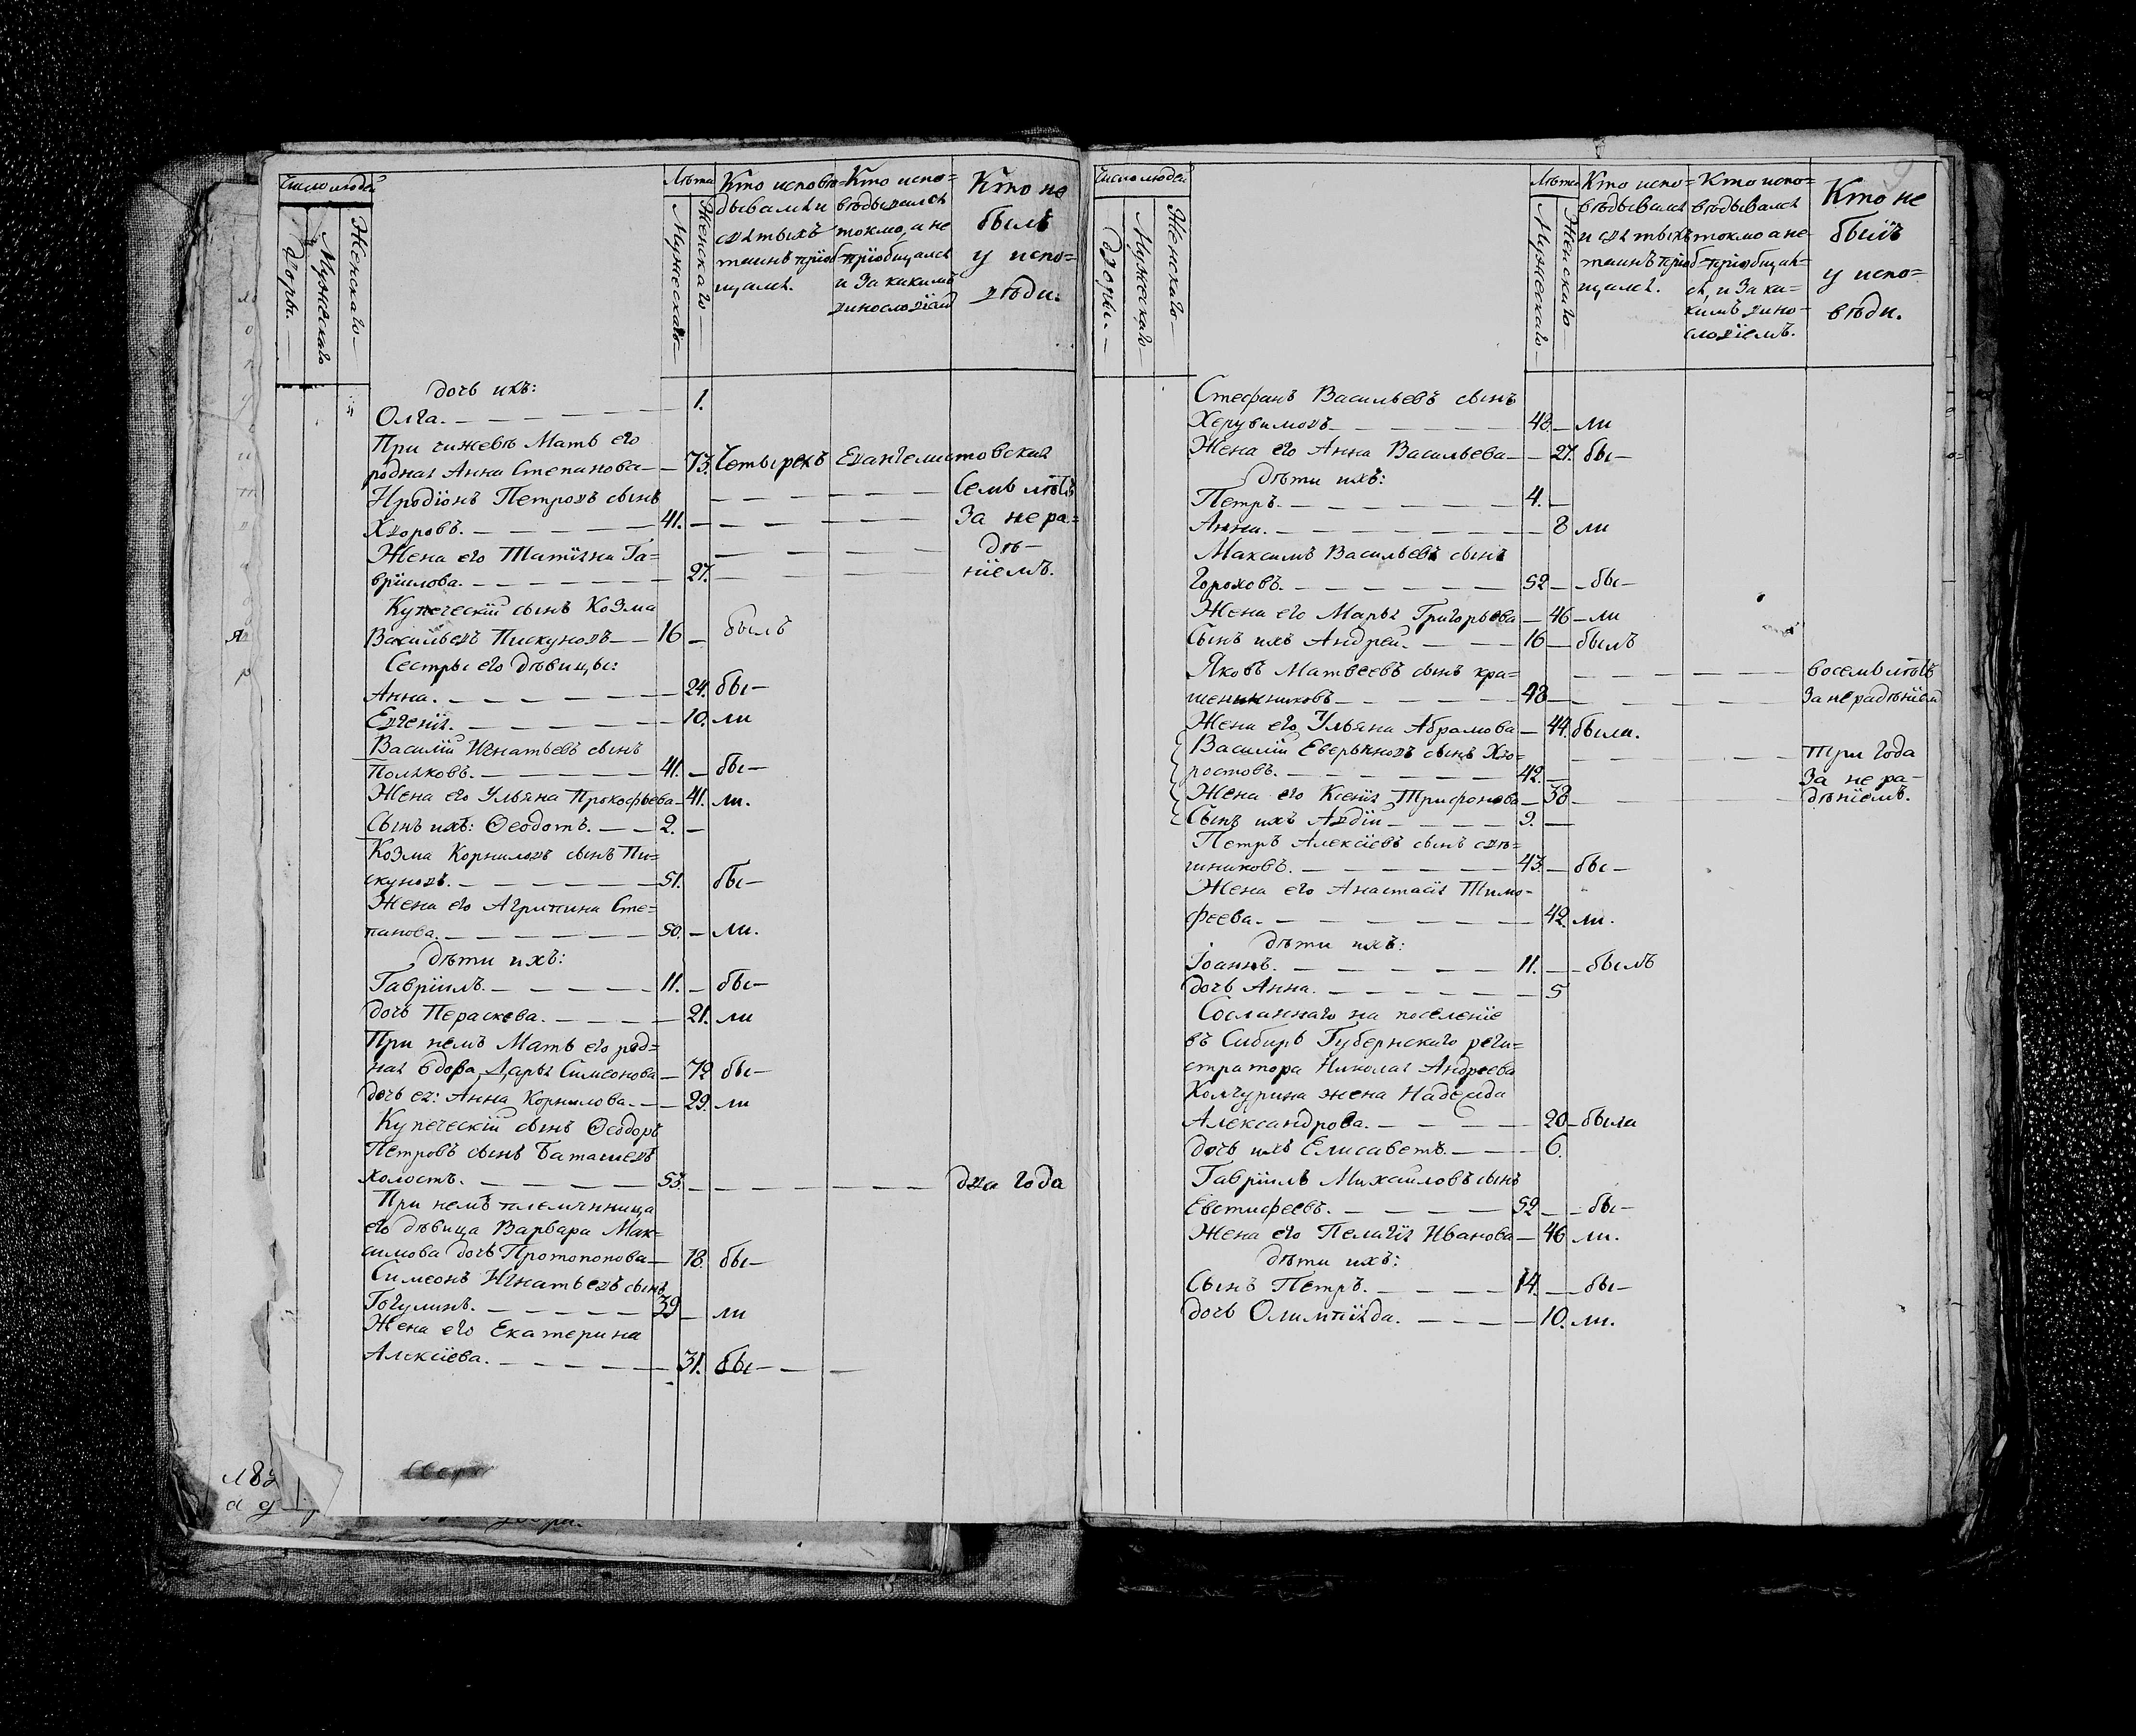 Число людей
Дворы.
Мужескаго
Женскаго
Лѣта
Мужескаго
Женскаго
Кто исповѣ=
дывались и
святыхъ
таинъ пріоб=
щались.
Кто испо=
вѣдывался
токмо, а не
пріобщался
и за какимъ
винословіем
Кто не
былъ
у испо=
вѣди.
дочь ихъ:
Олга. 1.
При чижевѣ Мать его
родная Анна Степанова 73. Четырехъ Евангелистовская
Иродіонъ Петровъ сынъ Семь лѣтъ
Хворовъ. 41. За не ра=
Жена его Татіяна Га= дѣ-
вріилова. 27. ніемъ.
Купеческій сынъ Козма
Васильевъ Пискуновъ 16 былъ
Сестры его дѣвицы:
Анна. 24. бы-
Евгенія. 10. ли
Василій Игнатьевъ сынъ
Поляковъ. 41. бы-
Жена его Ульяна Прокофьева 41. ли.
Сынъ ихъ: Ѳеодотъ. 2.
Козма Корниловъ сынъ Пи=
скуновъ. 51. бы-
Жена его Агрипина Сте=
панова. 50. ли.
дѣти ихъ:
Гавріилъ. 11. бы-
дочь Пераскева. 21. ли
При немъ Мать его род=
ная вдова Дарья Симеонова 72 бы-
дочь ея: Анна Корнилова. 29. ли
Купеческій сынъ Ѳеодоръ
Петровъ сынъ Баташевъ
холостъ. 53. два года
При немъ племянница
его дѣвица Варвара Мак=
симова дочь Протопопова 18. бы-
Симеонъ Игнатьевъ сынъ
Гогулинъ. 39 ли
Жена его Екатерина
Алексіева. 31. бы-
Число людей
Дворы.
Мужескаго
Женскаго
Лѣта
Мужескаго
Женскаго
Кто испо=
вѣдывался
и святыхъ
таинъ пріоб=
щался.
Кто испо=
вѣдывался
токмо а не
пріобщал=
ся, и за ка=
кимъ вино=
словіемъ.
Кто не
былъ
у испо=
вѣди.
9
Стефанъ Васильевъ сынъ
Херувимовъ 48 ли
Жена его Анна Васильева 27. бы-
Дѣти ихъ:
Петръ. 4.
Анна. 8 ли
Максимъ Васильевъ сынъ
Гороховъ. 52 бы-
Жена его Марья Григорьева 46 ли
Сынъ ихъ Андрей. 16 былъ
Яковъ Матвеевъ сынъ кра= восемь лѣтъ
шенинниковъ 48 За не радѣніем
Жена его Ульяна Абрамова 44. была.
Василій Еверьяновъ сынъ Хво= три года
ростовъ. 42. За не ра-
Жена его Ксенія Трифонова 38 дѣніемъ.
Сынъ ихъ Авдій 9.
Петръ Алексіевъ сынъ свѣ=
шниковъ. 43. бы-
Жена его Анастасія Тимо-
феева. 42. ли.
дѣти ихъ:
Іоаннъ. 11. былъ
дочь Анна. 5
Сосланнаго на поселеніе
въ Сибирь Губернскаго реги=
стратора Николая Андреева
Колчурина жена Надежда
Александрова. 20 была
дочь ихъ Елисаветъ. 6.
Гавріилъ Михайловъ сынъ
Евстифеевъ. 52 бы-
Жена его Пелагія Иванова 46 ли.
дѣти ихъ:
Сынъ Петръ. 14. бы-
дочь Олимпіяда. 10. ли.